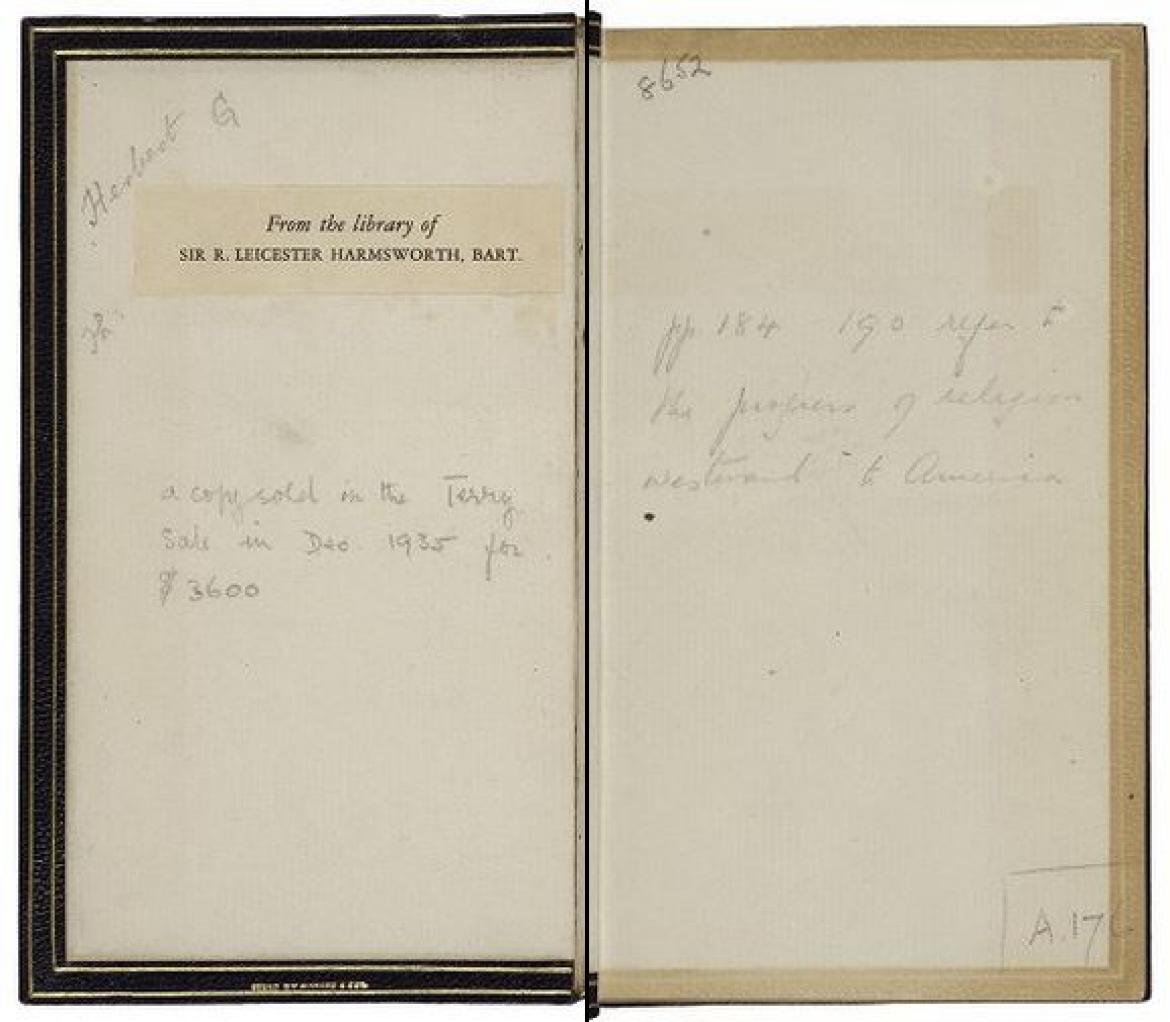 Herbert G
From the library of
SIR R. LEICESTER HARMSWORTH, BART.
a copy sold in the Terry
Sale in Dec. 1935 for
$3600
8652
pp 184 190 refer to
the progress of religion
westward to America
A.17